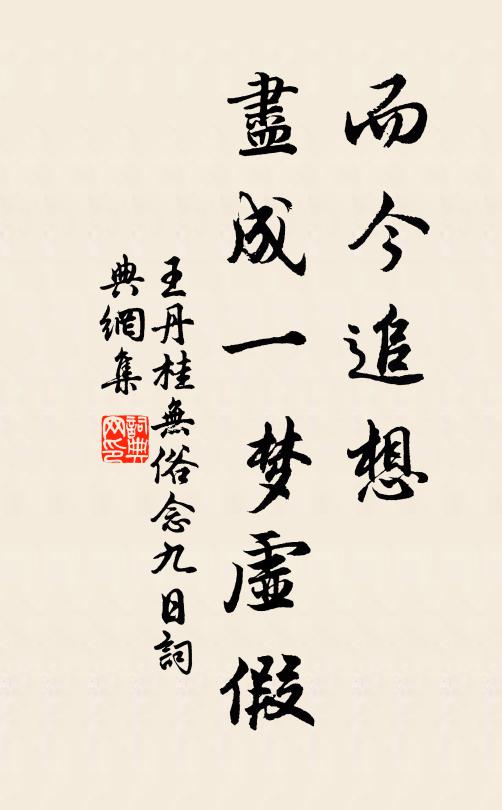 而今追想
盡成一梦虛假
王丹桂無俗念九日詞
典網集
詞典
网印